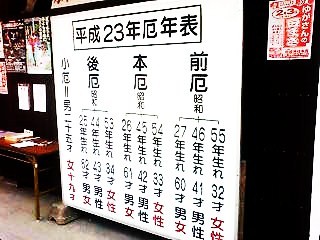 平成23年厄年表
前厄 昭和
55年生れ 32才 女性
46年生れ 41才 男性
27年生れ 60才 男
本厄 昭和
54年生れ 33才 女性
45年生れ 42才 男性
26年生れ 61才 男
後厄 昭和
53年生れ 34才 女性
44年生れ 43才 男性
25年生れ 62才 男
小厄=男二十五才 女十九才